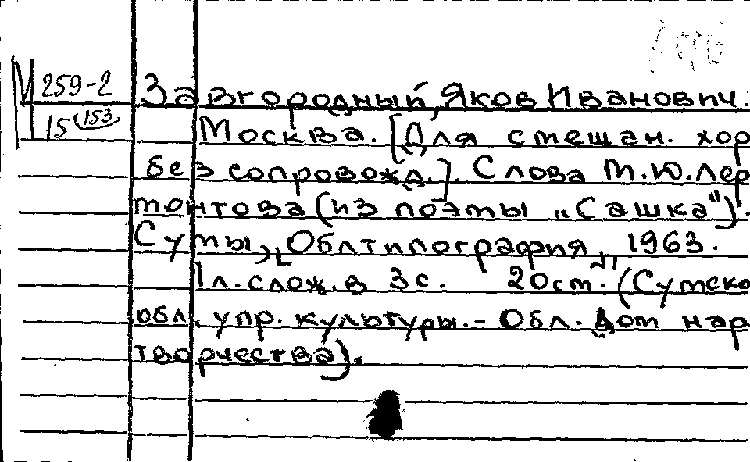 М 259-2
15 153
Завгородный, Яков Иванович.
Москва. [Для смешан. хор
без сопровожд.]. Слова М.Ю.Лер
монтова (из поэмы „Сашка").
Сумы, „Облтипография", 1963.
1л. слож. в 3с. 20см. (Сумско
обл. упр. культуры. - Обл. Дом нар
творчества).